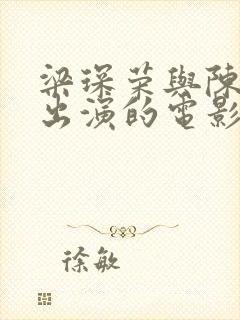 梁琛荣與陳
出演的電影
徐敏